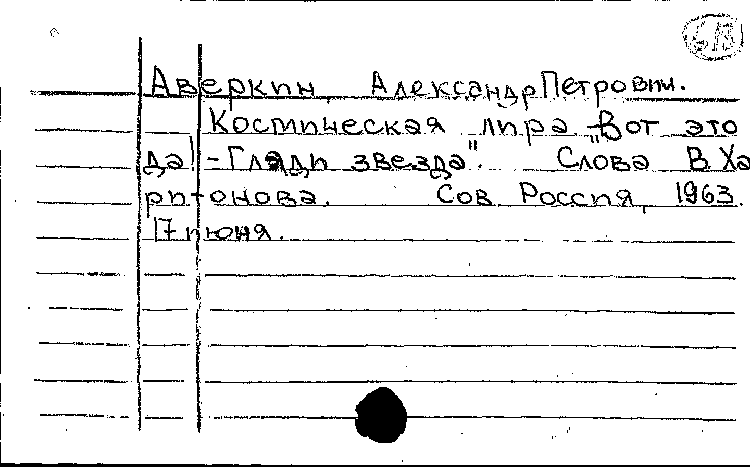 613
Аверкин, Александр Петрович.
Космическая лира „Вот это
да! - Гляди звезда". Слова В. Ха
ритонова. Сов. Россия, 1963.
17 июня.